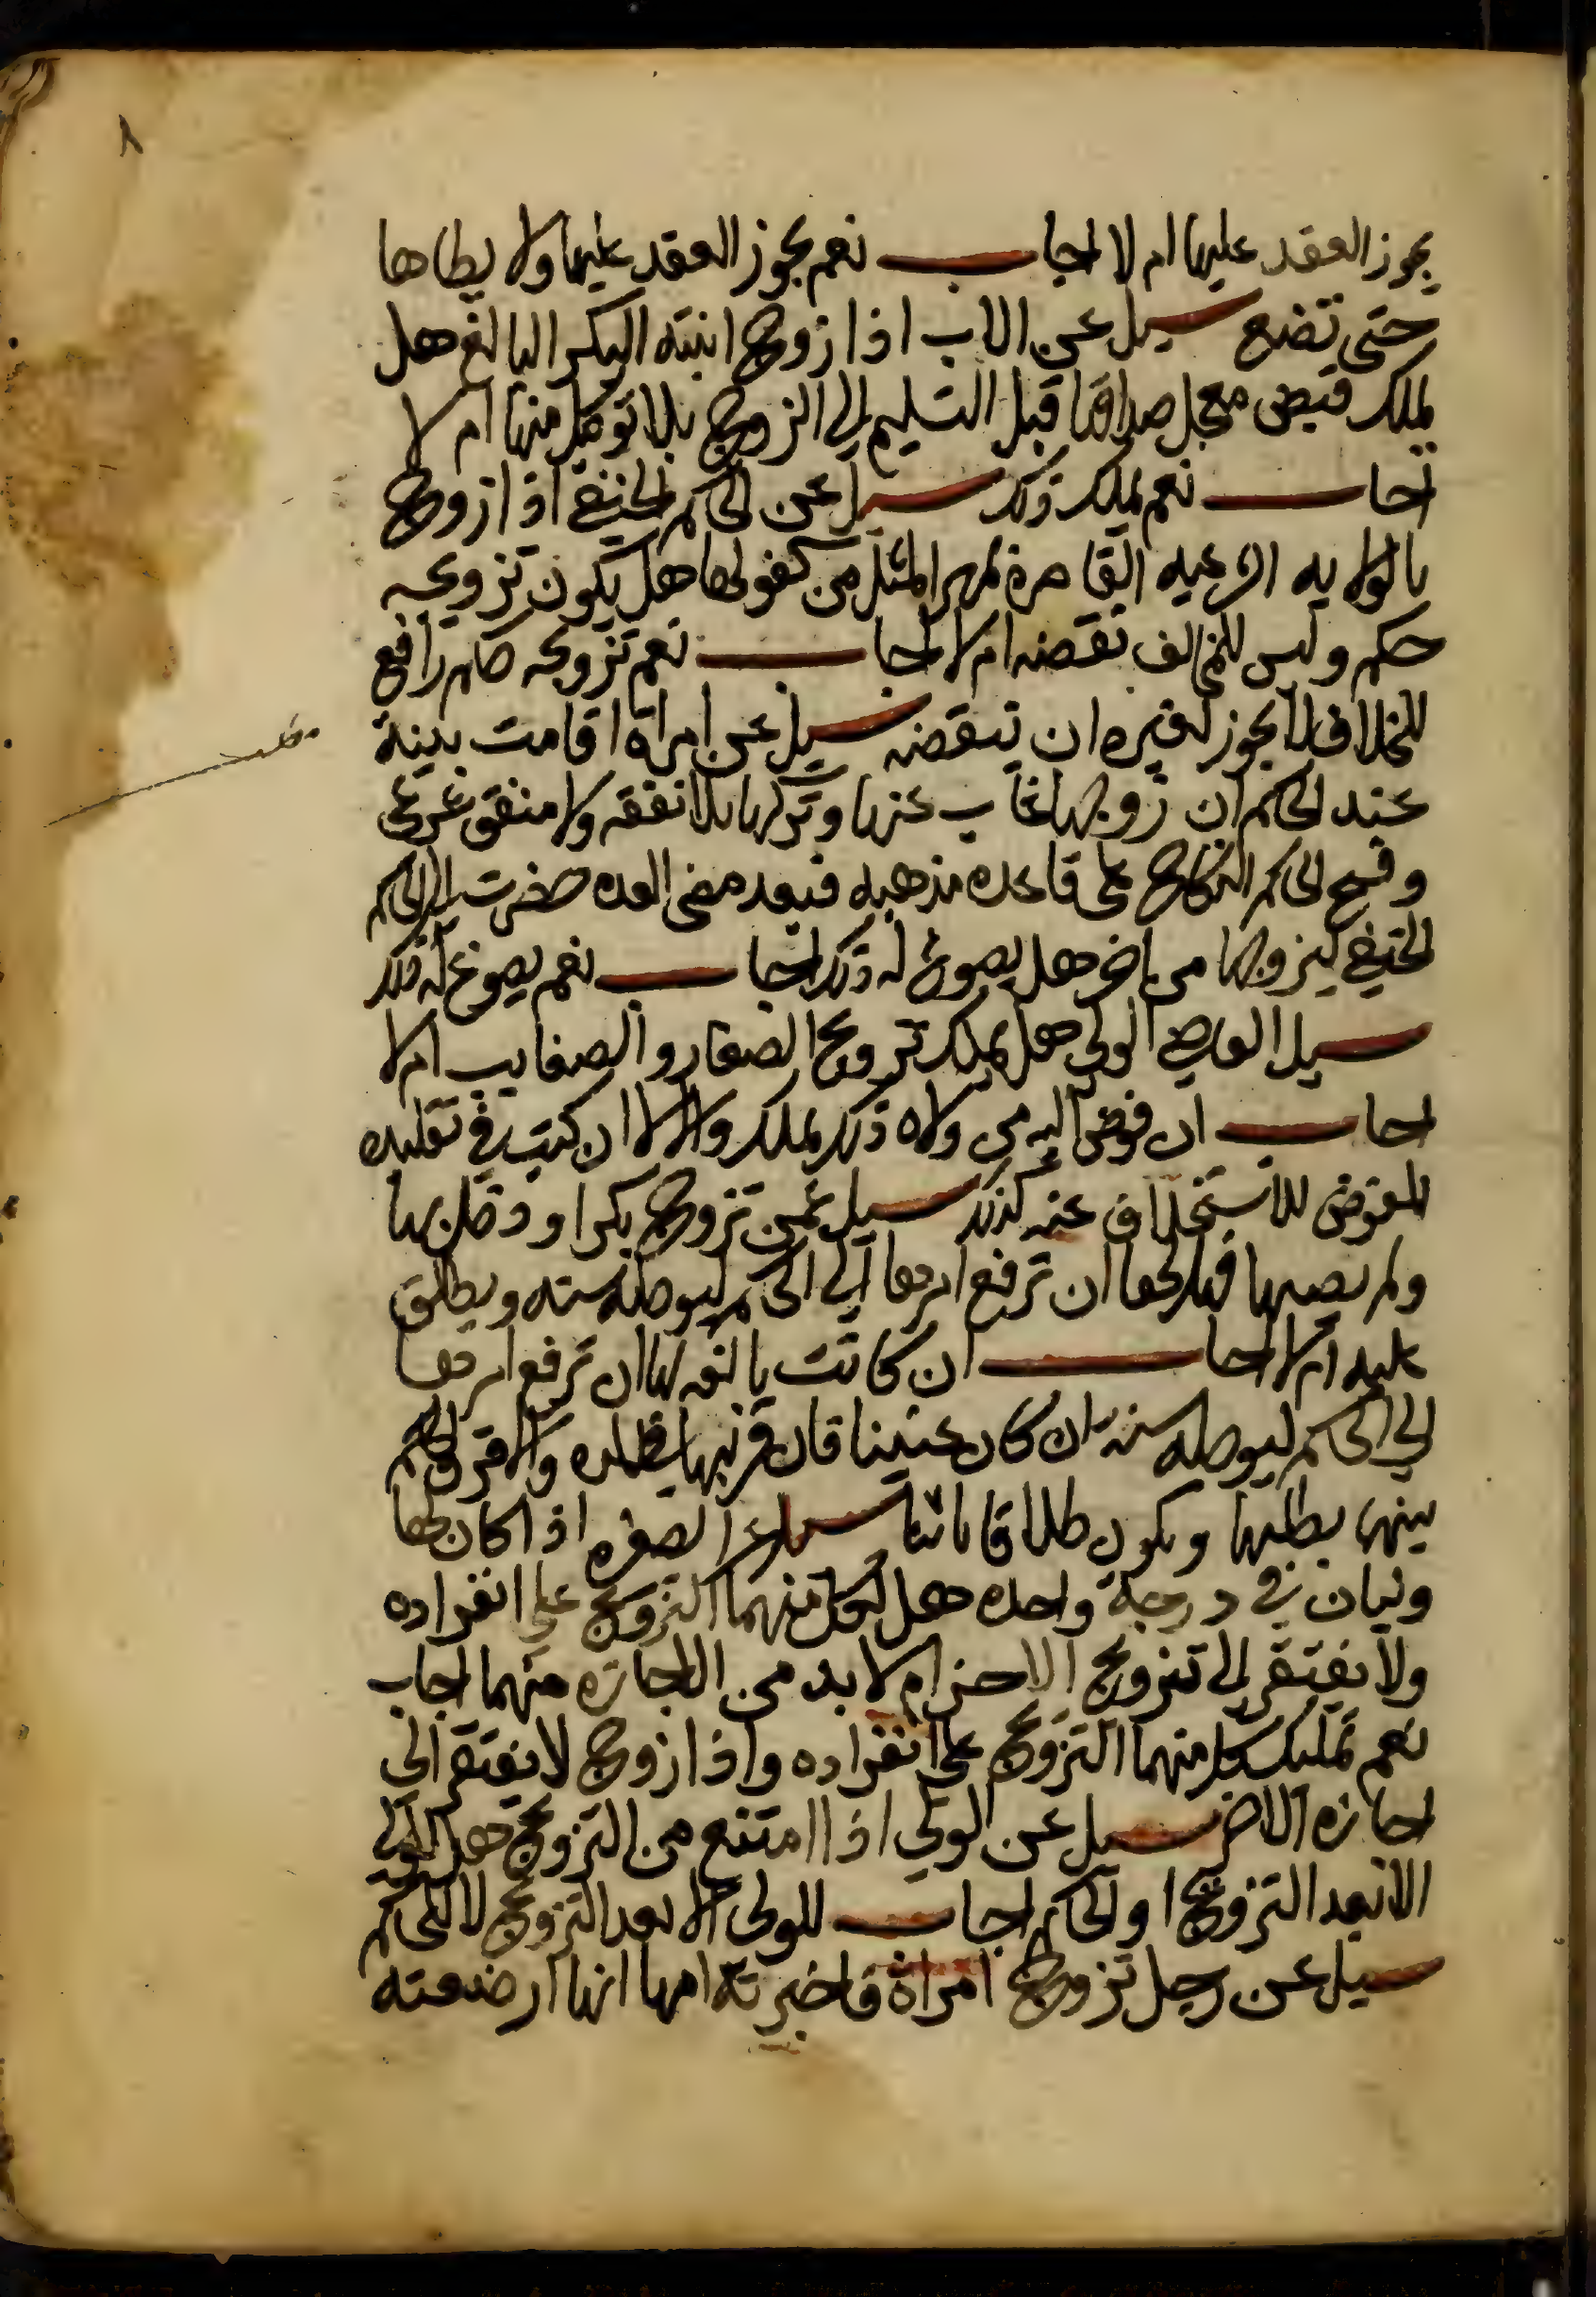 ٨
يجوز العقد عليها ام لا اجاب نعم يجوز العقد عليها ولا يطاها
حتى تضع سيل عن الاب اذا زوج ابنته البكر البالغ هل
يملك قبض معجل صداقها قبل التسليم الى الزوج بلا توكيل منها ام لا
اجاب نعم يملك ذلك سيل عن الحاكم الحنفي اذا زوج
بالولايه الشرعيه القاصرة بمهر المثل من كفو لها هل يكون تزويجه
حكم وليس للمخالف نقضه ام لا اجاب نعم تزويجه حكم رافع
للخلاف فلا يجوز لغيره ان ينقضه سيل عن امراة اقامت بينة
مطلب
عند الحاكم ان زوجها غاب عنها وتركها بلا نفقه ولا منفق شرعي
وفسخ الحاكم النكاح على قاعده مذهبه فبعد مضى العده حضرت الى الحاكم
الحنفي ليزوجها من اخر هل يصوغ له ذلك اجاب نعم يصوغ له ذلك
سيل القاضي الولي هل يملك تزويج الصغار والصغايب ام لا
اجاب ان فوض اليه من ولاه ذلك يملك والا لا ان كتب في تقليده
المفوض للاستخلاف عنه كذلك سيل عمن تزوج بكرا ودخل بها
ولم يصبها فهل لها ان ترفع امرها الى الحاكم ليوجله سنه ويطلق
عليه ام لا اجاب ان كانت بالغه لها ان ترفع امرها
الى الحاكم ليوجله سنه ان كان عنينا فان قربها والا فرق الحاكم
بينهما بطلبها ويكون طلاقا باينا سيل عن الصغره اذا كان لها
وليان في درجة واحده هل لكل منهما التزويج على انفراده
ولا يفتقر الى تزويج الاخر ام لا بد من الاجازه منهما اجاب
نعم تمليك كل منهما التزويج على انفراده واذا زوج لا يفتقر الى
اجازه الاخر سيل عن الولي اذا امتنع من التزويج هل للولي
الابعد التزويج او للحاكم اجاب للولى الابعد التزويج لا للحاكم
سيل عن رجل تزوج امراة فاخبرته امها انها ارضعته